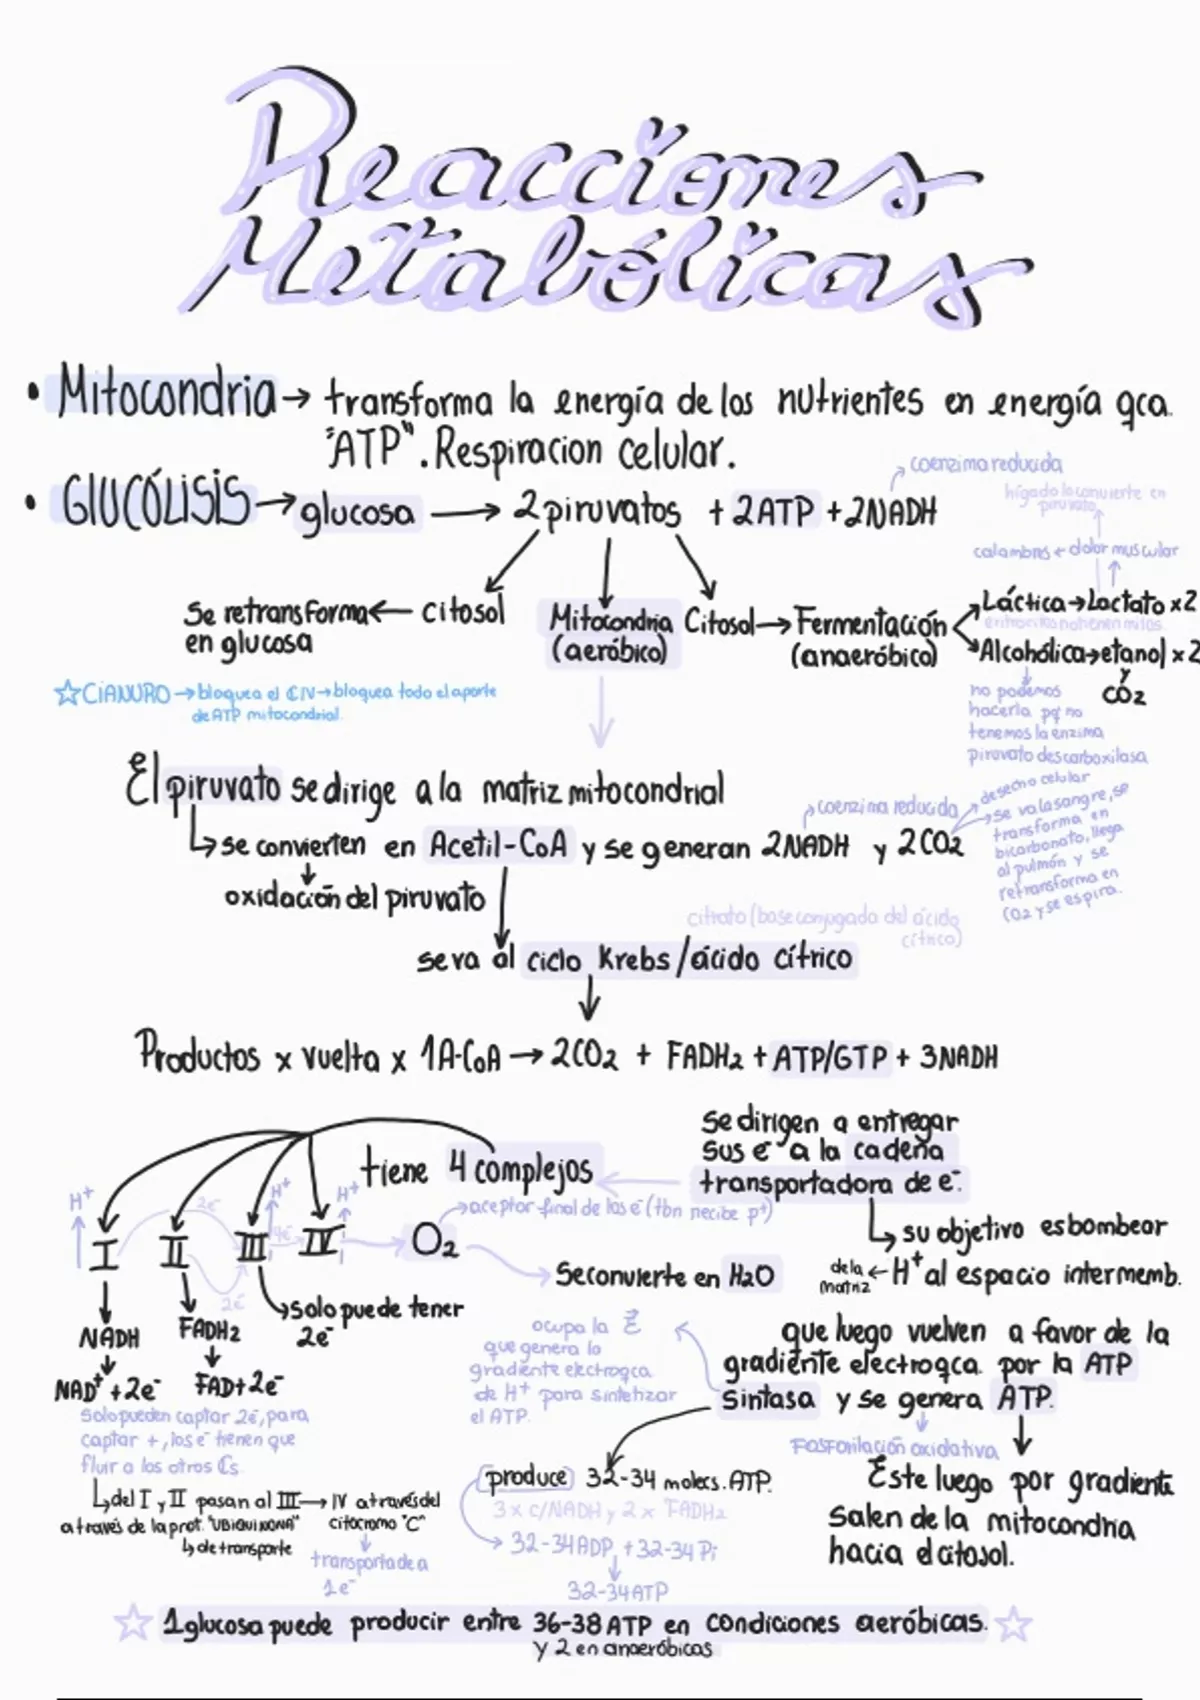 Reacciones
Metabólicas
• Mitocondria → transforma la energía de los nutrientes en energía qca.
"ATP". Respiracion celular.
coenzima reducida
• GlUCÓLISIS → glucosa → 2 piruvatos + 2ATP + 2NADH
hígado lo convierte en
piruvato
calambres ← dolor muscular
Se retransforma ← citosol
en glucosa
Mitocondria
(aeróbico)
Citosol → Fermentación
(anaeróbico)
Láctica → Lactato x2
eritrocitos no tienen mitos.
Alcohólica → etanol x2
y
CO2
no podemos
hacerla pq no
tenemos la enzima
piruvato descarboxilasa
☆ CIANURO → bloquea el CIV → bloquea todo el aporte
de ATP mitocondrial.
El piruvato se dirige a la matriz mitocondrial
coenzima reducida
↳ se convierten en Acetil-CoA y se generan 2NADH y 2CO2
desecho celular
se va la sangre, se
transforma en
bicarbonato, llega
al pulmón y se
retransforma en
CO2 y se espira.
oxidación del piruvato
citrato (base conjugada del ácido
cítrico)
se va al ciclo Krebs/ácido cítrico
Productos x vuelta x 1A-CoA → 2CO2 + FADH2 + ATP/GTP + 3NADH
Se dirigen a entregar
sus e⁻ a la cadena
transportadora de e⁻.
tiene 4 complejos
↳ su objetivo es bombear
de la matriz ← H⁺ al espacio intermemb.
→ aceptor final de los e⁻ (tbn recibe p⁺)
H⁺ H⁺ H⁺
2e⁻ 4e⁻
I II III IV → O2
2e⁻
Se convierte en H2O
↳ solo puede tener
2e⁻
NADH FADH2
NAD⁺ + 2e⁻ FAD + 2e⁻
que luego vuelven a favor de la
gradiente electroqca. por la ATP
sintasa y se genera ATP.
ocupa la E
que genera la
gradiente electroqca.
de H⁺ para sintetizar
el ATP.
Solo pueden captar 2e⁻, para
captar +, los e⁻ tienen que
fluir a los otros Cs.
Fosforilación oxidativa
Este luego por gradiente
salen de la mitocondria
hacia el citosol.
produce 32-34 molecs. ATP.
3 x c/NADH y 2 x FADH2
→ 32-34 ADP + 32-34 Pi
32-34 ATP
↳ del I y II pasan al III → IV a través del
a través de la prot. "UBIQUINONA" citocromo "C"
↳ de transporte
transporta de a
1e⁻
☆ 1 glucosa puede producir entre 36-38 ATP en condiciones aeróbicas. ☆
y 2 en anaeróbicas